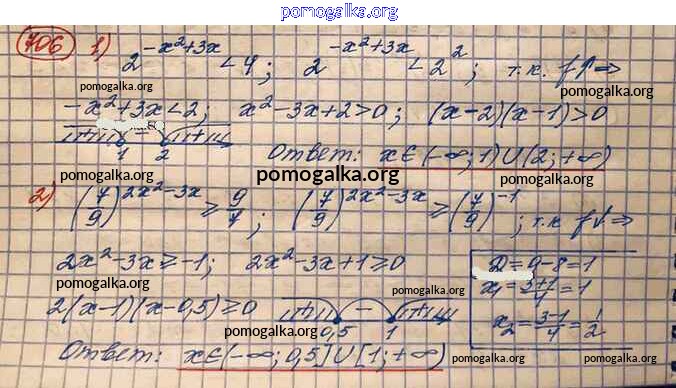 pomogalka.org
706 1) 2^(-x²+3x) < 4; 2^(-x²+3x) < 2²; т.к. f↑ ⇒
pomogalka.org pomogalka.org pomogalka.org
-x²+3x<2; x²-3x+2>0; (x-2)(x-1)>0
pomogalka.org
+ - +
1 2
Ответ: x∈(-∞;1)∪(2;+∞)
pomogalka.org pomogalka.org pomogalka.org
2) (7/9)^(2x²-3x) ≥ 9/7; (7/9)^(2x²-3x) ≥ (7/9)^(-1); т.к f↓ ⇒
2x²-3x≥-1; 2x²-3x+1≥0
D=9-8=1
x₁=(3+1)/4=1
x₂=(3-1)/4=1/2
pomogalka.org pomogalka.org
2(x-1)(x-0,5)≥0
+ - +
0,5 1
pomogalka.org
Ответ: x∈(-∞;0,5]∪[1;+∞)
pomogalka.org pomogalka.org pomogalka.org